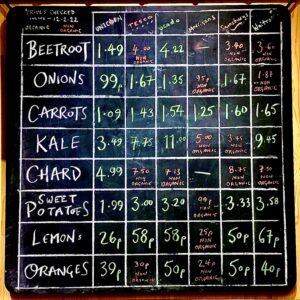 PRICES CHECKED
12-2-22
ORGANIC NON ORGANIC UNICORN TESCO Ocado Morrisons Sainsburys Waitrose
BEETROOT 1.49 4.00 NON ORGANIC 4.22 — 3.40 NON ORGANIC 3.6 NON ORGANIC
ONIONS 99p 1.67 1.35 95p NON ORGANIC 1.67 1.88 NON ORGANIC
CARROTS 1.09 1.43 1.54 1.25 1.60 1.65
KALE 3.49 7.75 11.00 5.00 NON ORGANIC 3.75 NON ORGANIC 9.45
CHARD 4.99 7.50 NON ORGANIC 7.13 NON ORGANIC — 8.75 NON ORGANIC 7.50 NON ORGANIC
SWEET POTATOES 1.99 3.00 3.20 99p NON ORGANIC 3.33 3.58
LEMONS 26p 58p 58p 25p NON ORGANIC 50p 67p
ORANGES 39p 30p NON ORGANIC 50p 24p NON ORGANIC 50p 40p